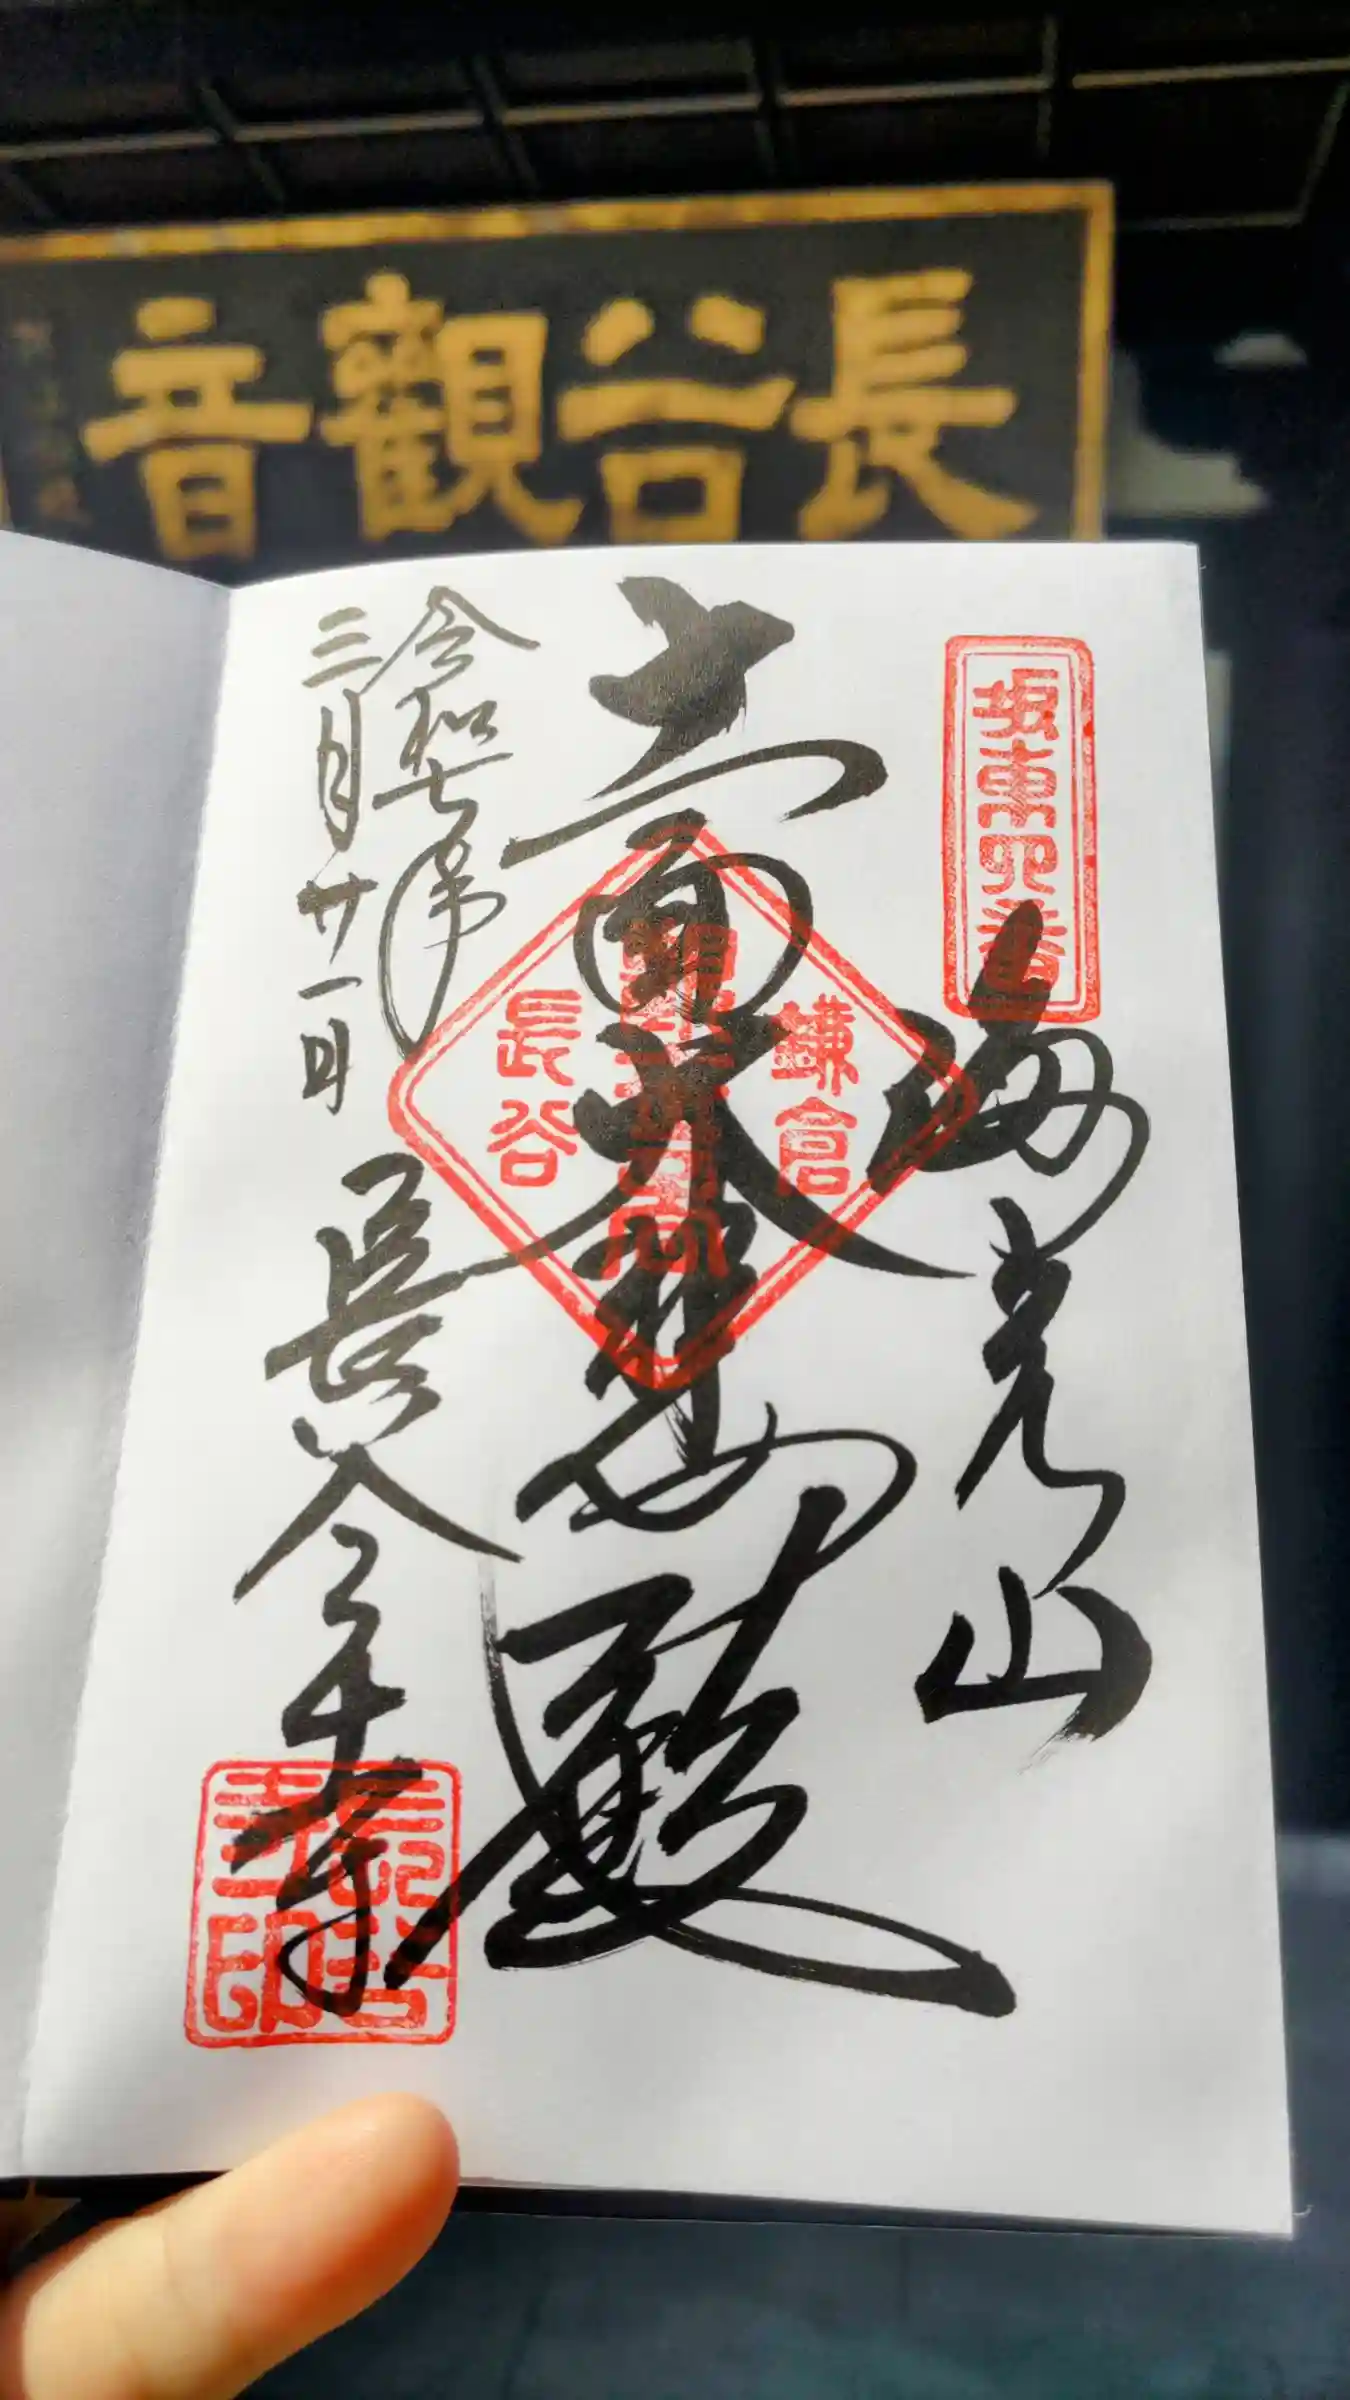 長谷觀音
坂東四番
海光山
十一面大悲殿
鎌倉
長谷
令和七年
三月廿一日
長谷寺
長谷寺印